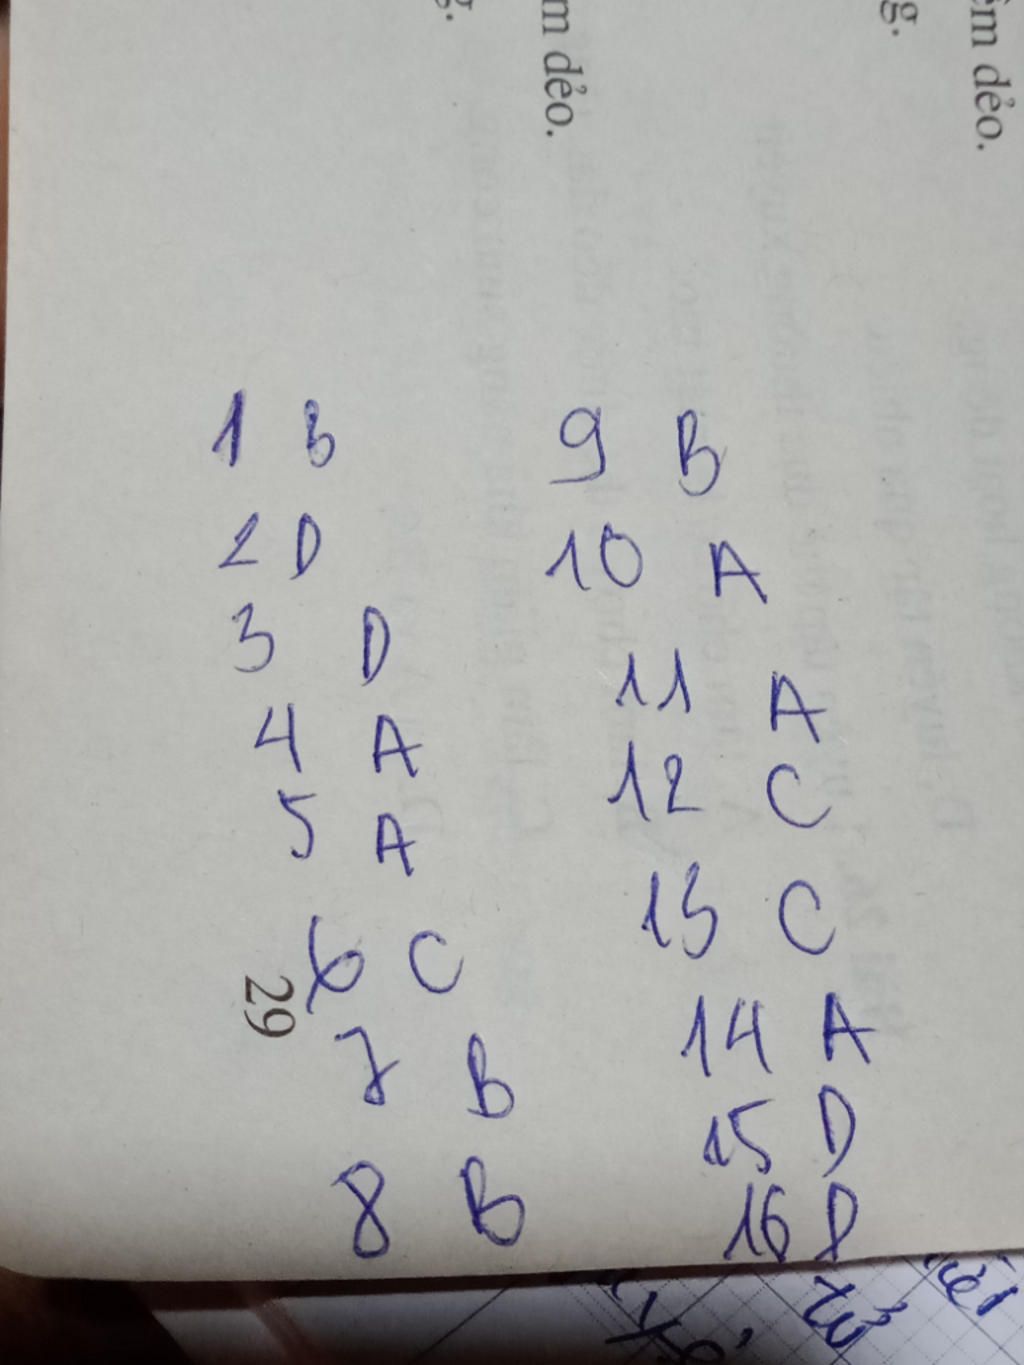 g.
êm dẻo.
g.
m dẻo.
1 B
2 D
3 D
4 A
5 A
6 C
7 B
8 B
9 B
10 A
11 A
12 C
13 C
14 A
15 D
16 D
29
từ